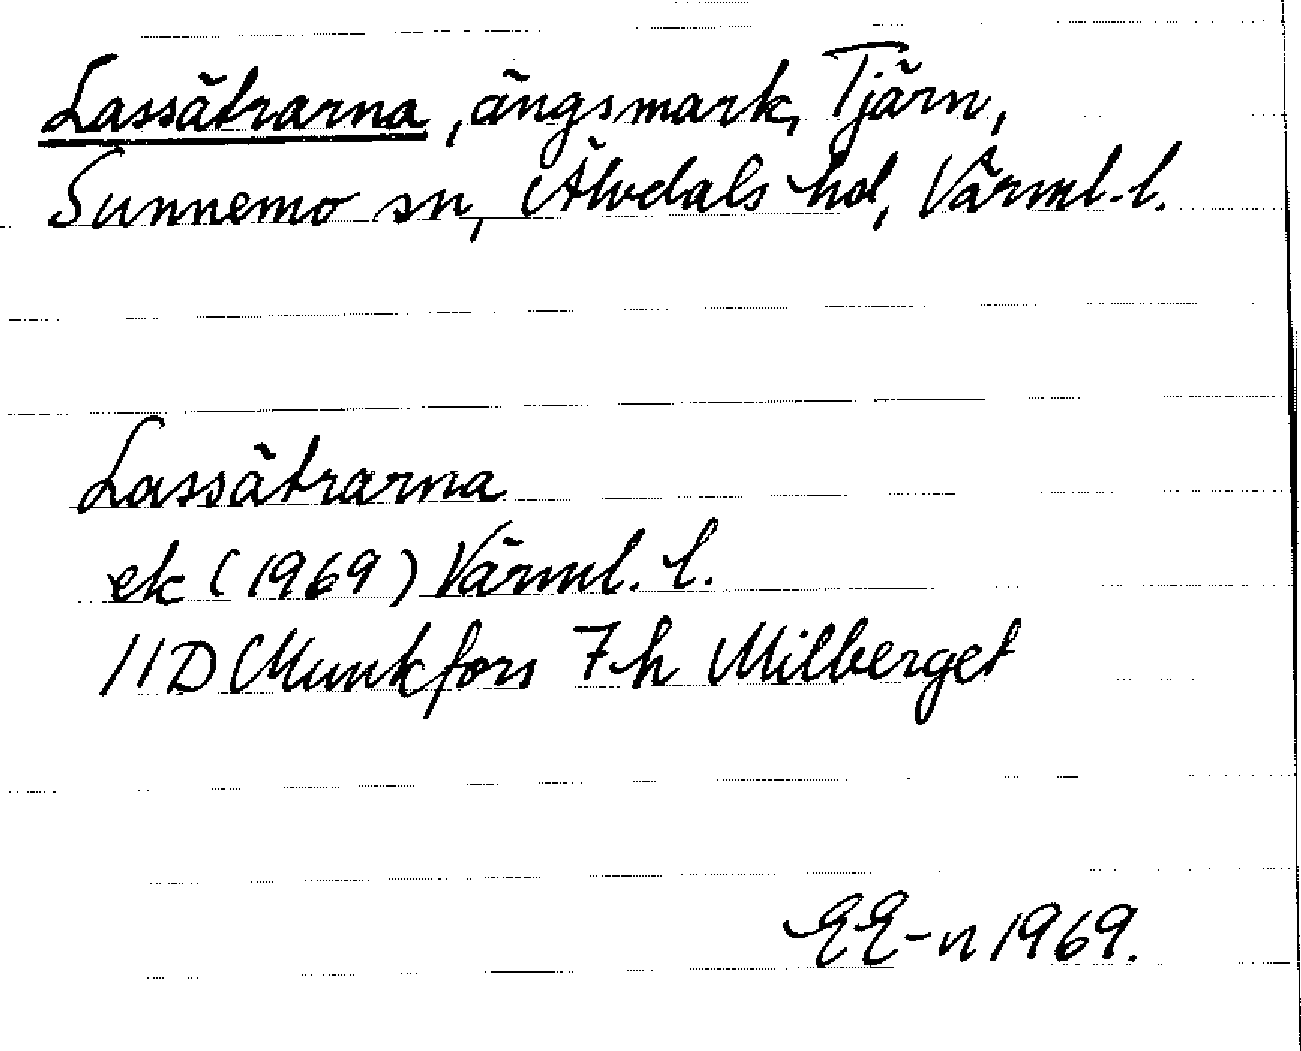 Lassätrarna, ängsmark, Tjärn,
Sunnemo sn, Älvdals hd, Värml. l.
Lassätrarna
ek (1969) Värml. l.
11D Munkfors 7h Milberget
EE-n 1969.